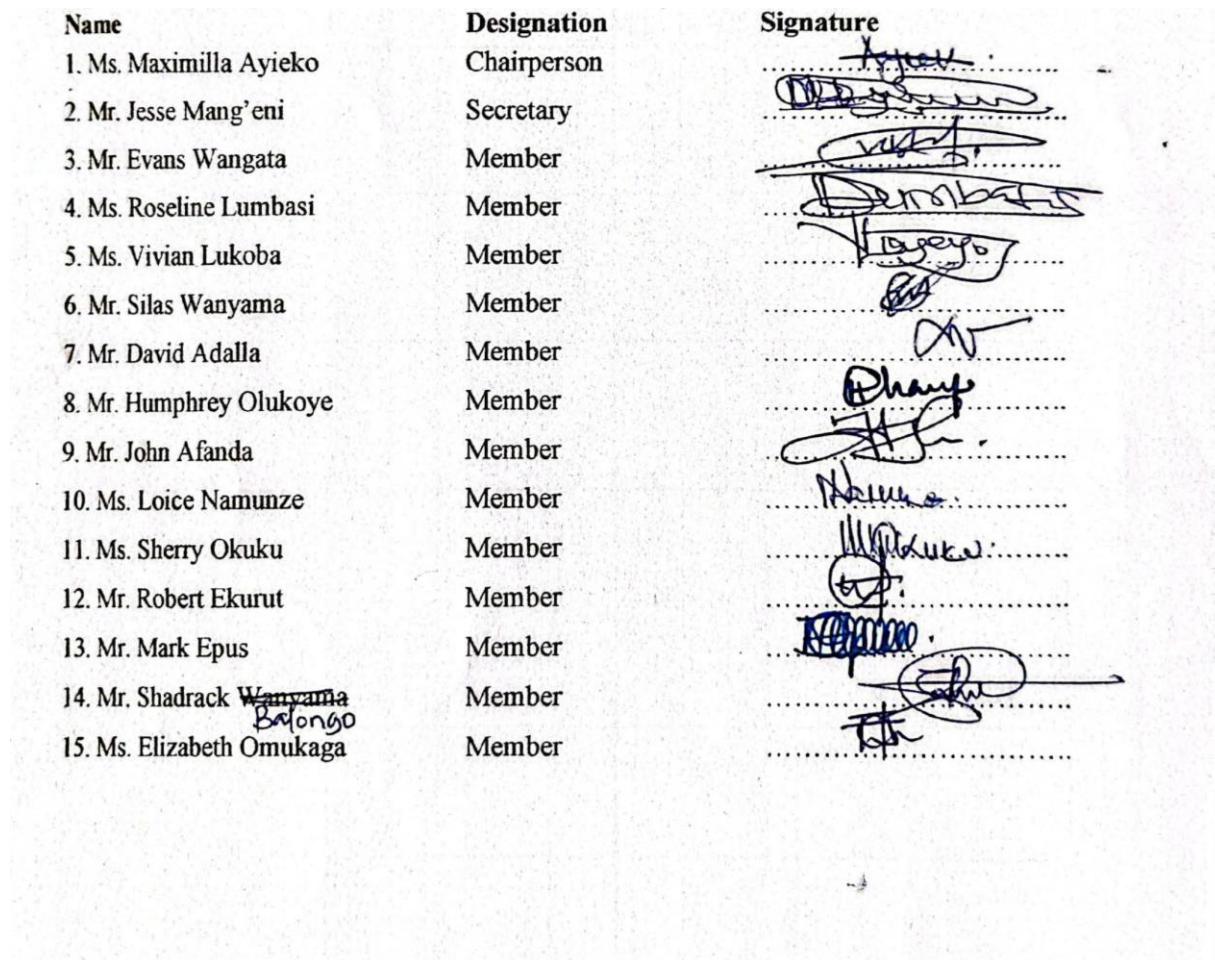 Name Designation Signature
1. Ms. Maximilla Ayieko Chairperson
2. Mr. Jesse Mang'eni Secretary
3. Mr. Evans Wangata Member
4. Ms. Roseline Lumbasi Member
5. Ms. Vivian Lukoba Member
6. Mr. Silas Wanyama Member
7. Mr. David Adalla Member
8. Mr. Humphrey Olukoye Member
9. Mr. John Afanda Member
10. Ms. Loice Namunze Member
11. Ms. Sherry Okuku Member
12. Mr. Robert Ekurut Member
13. Mr. Mark Epus Member
14. Mr. Shadrack Wanyama Member
Balongo
15. Ms. Elizabeth Omukaga Member